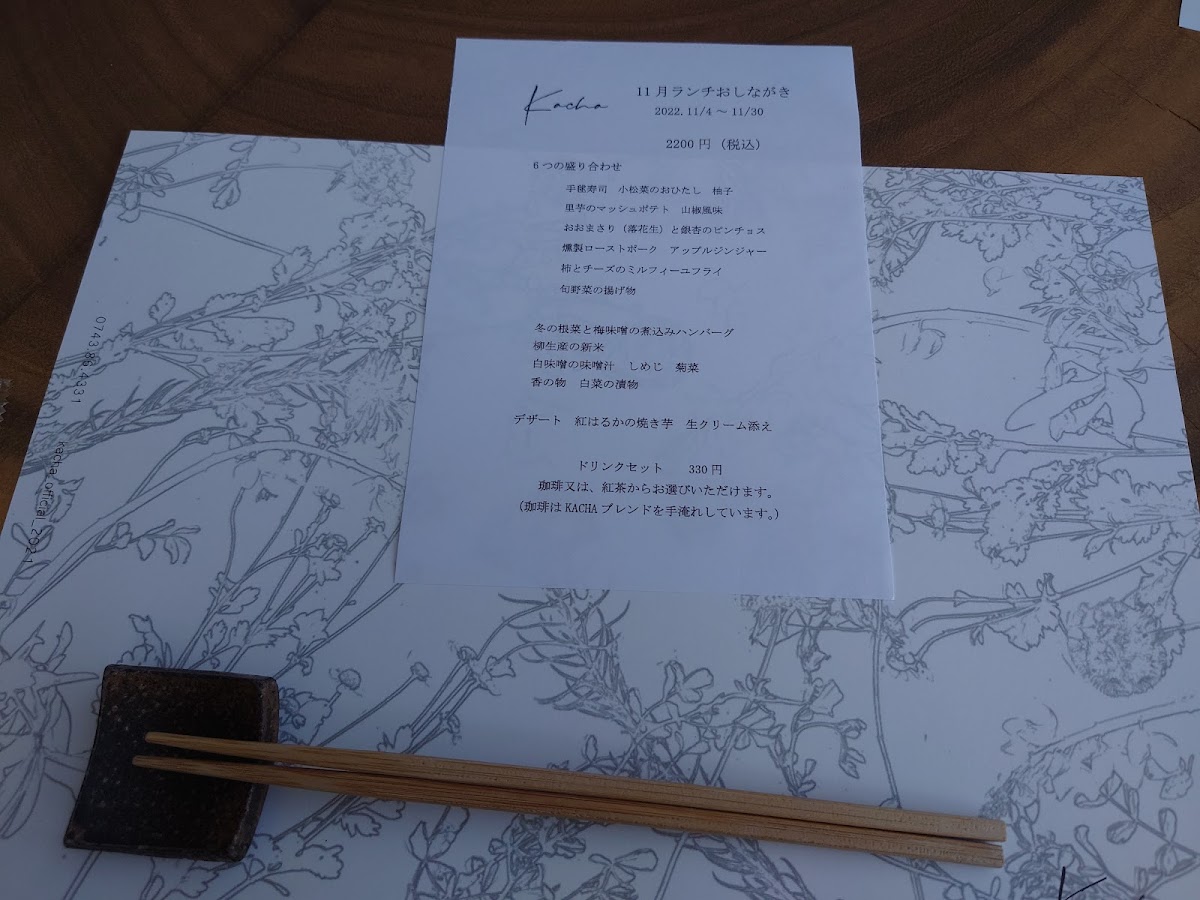 Kacha
11月ランチおしながき
2022.11/4～11/30
2200円（税込）
6つの盛り合わせ
手毬寿司　小松菜のおひたし　柚子
里芋のマッシュポテト　山椒風味
おおまさり（落花生）と銀杏のピンチョス
燻製ローストポーク　アップルジンジャー
柿とチーズのミルフィーユフライ
旬野菜の揚げ物
冬の根菜と梅味噌の煮込みハンバーグ
柳生産の新米
白味噌の味噌汁　しめじ　菊菜
香の物　白菜の漬物
デザート　紅はるかの焼き芋　生クリーム添え
ドリンクセット　330円
珈琲又は、紅茶からお選びいただけます。
（珈琲はKACHAブレンドを手淹れしています。）
kacha_official_2021